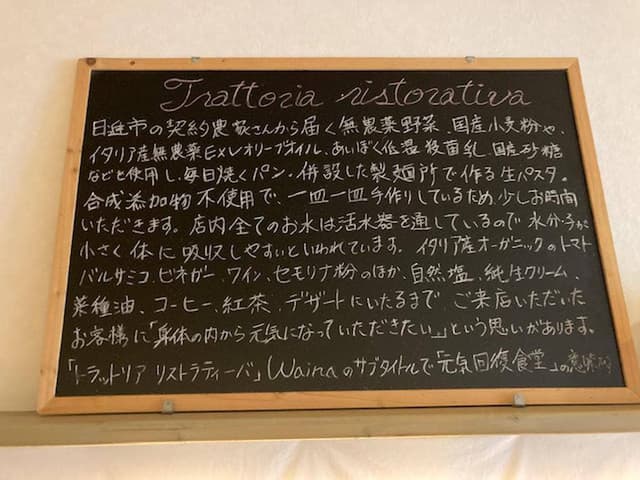 Trattoria ristorativa
日進市の契約農家さんから届く無農薬野菜、国産小麦粉や、
イタリア産無農薬EXVオリーブオイル、あいぼく低温殺菌乳、国産砂糖
などを使用し、毎日焼くパン・併設した製麺所で作る生パスタ。
合成添加物不使用で、一皿一皿手作りしているため、少しお時間
いただきます。店内全てのお水は活水器を通しているので水分子が
小さく体に吸収しやすいといわれています。イタリア産オーガニックのトマト
バルサミコ、ビネガー、ワイン、セモリナ粉のほか、自然塩、純生クリーム、
菜種油、コーヒー、紅茶、デザートにいたるまで、ご来店いただいた
お客様に「身体の内から元気になっていただきたい。」という思いがあります。
「トラットリア リストラティーバ」Wainaのサブタイトルで「元気回復食堂」の意味